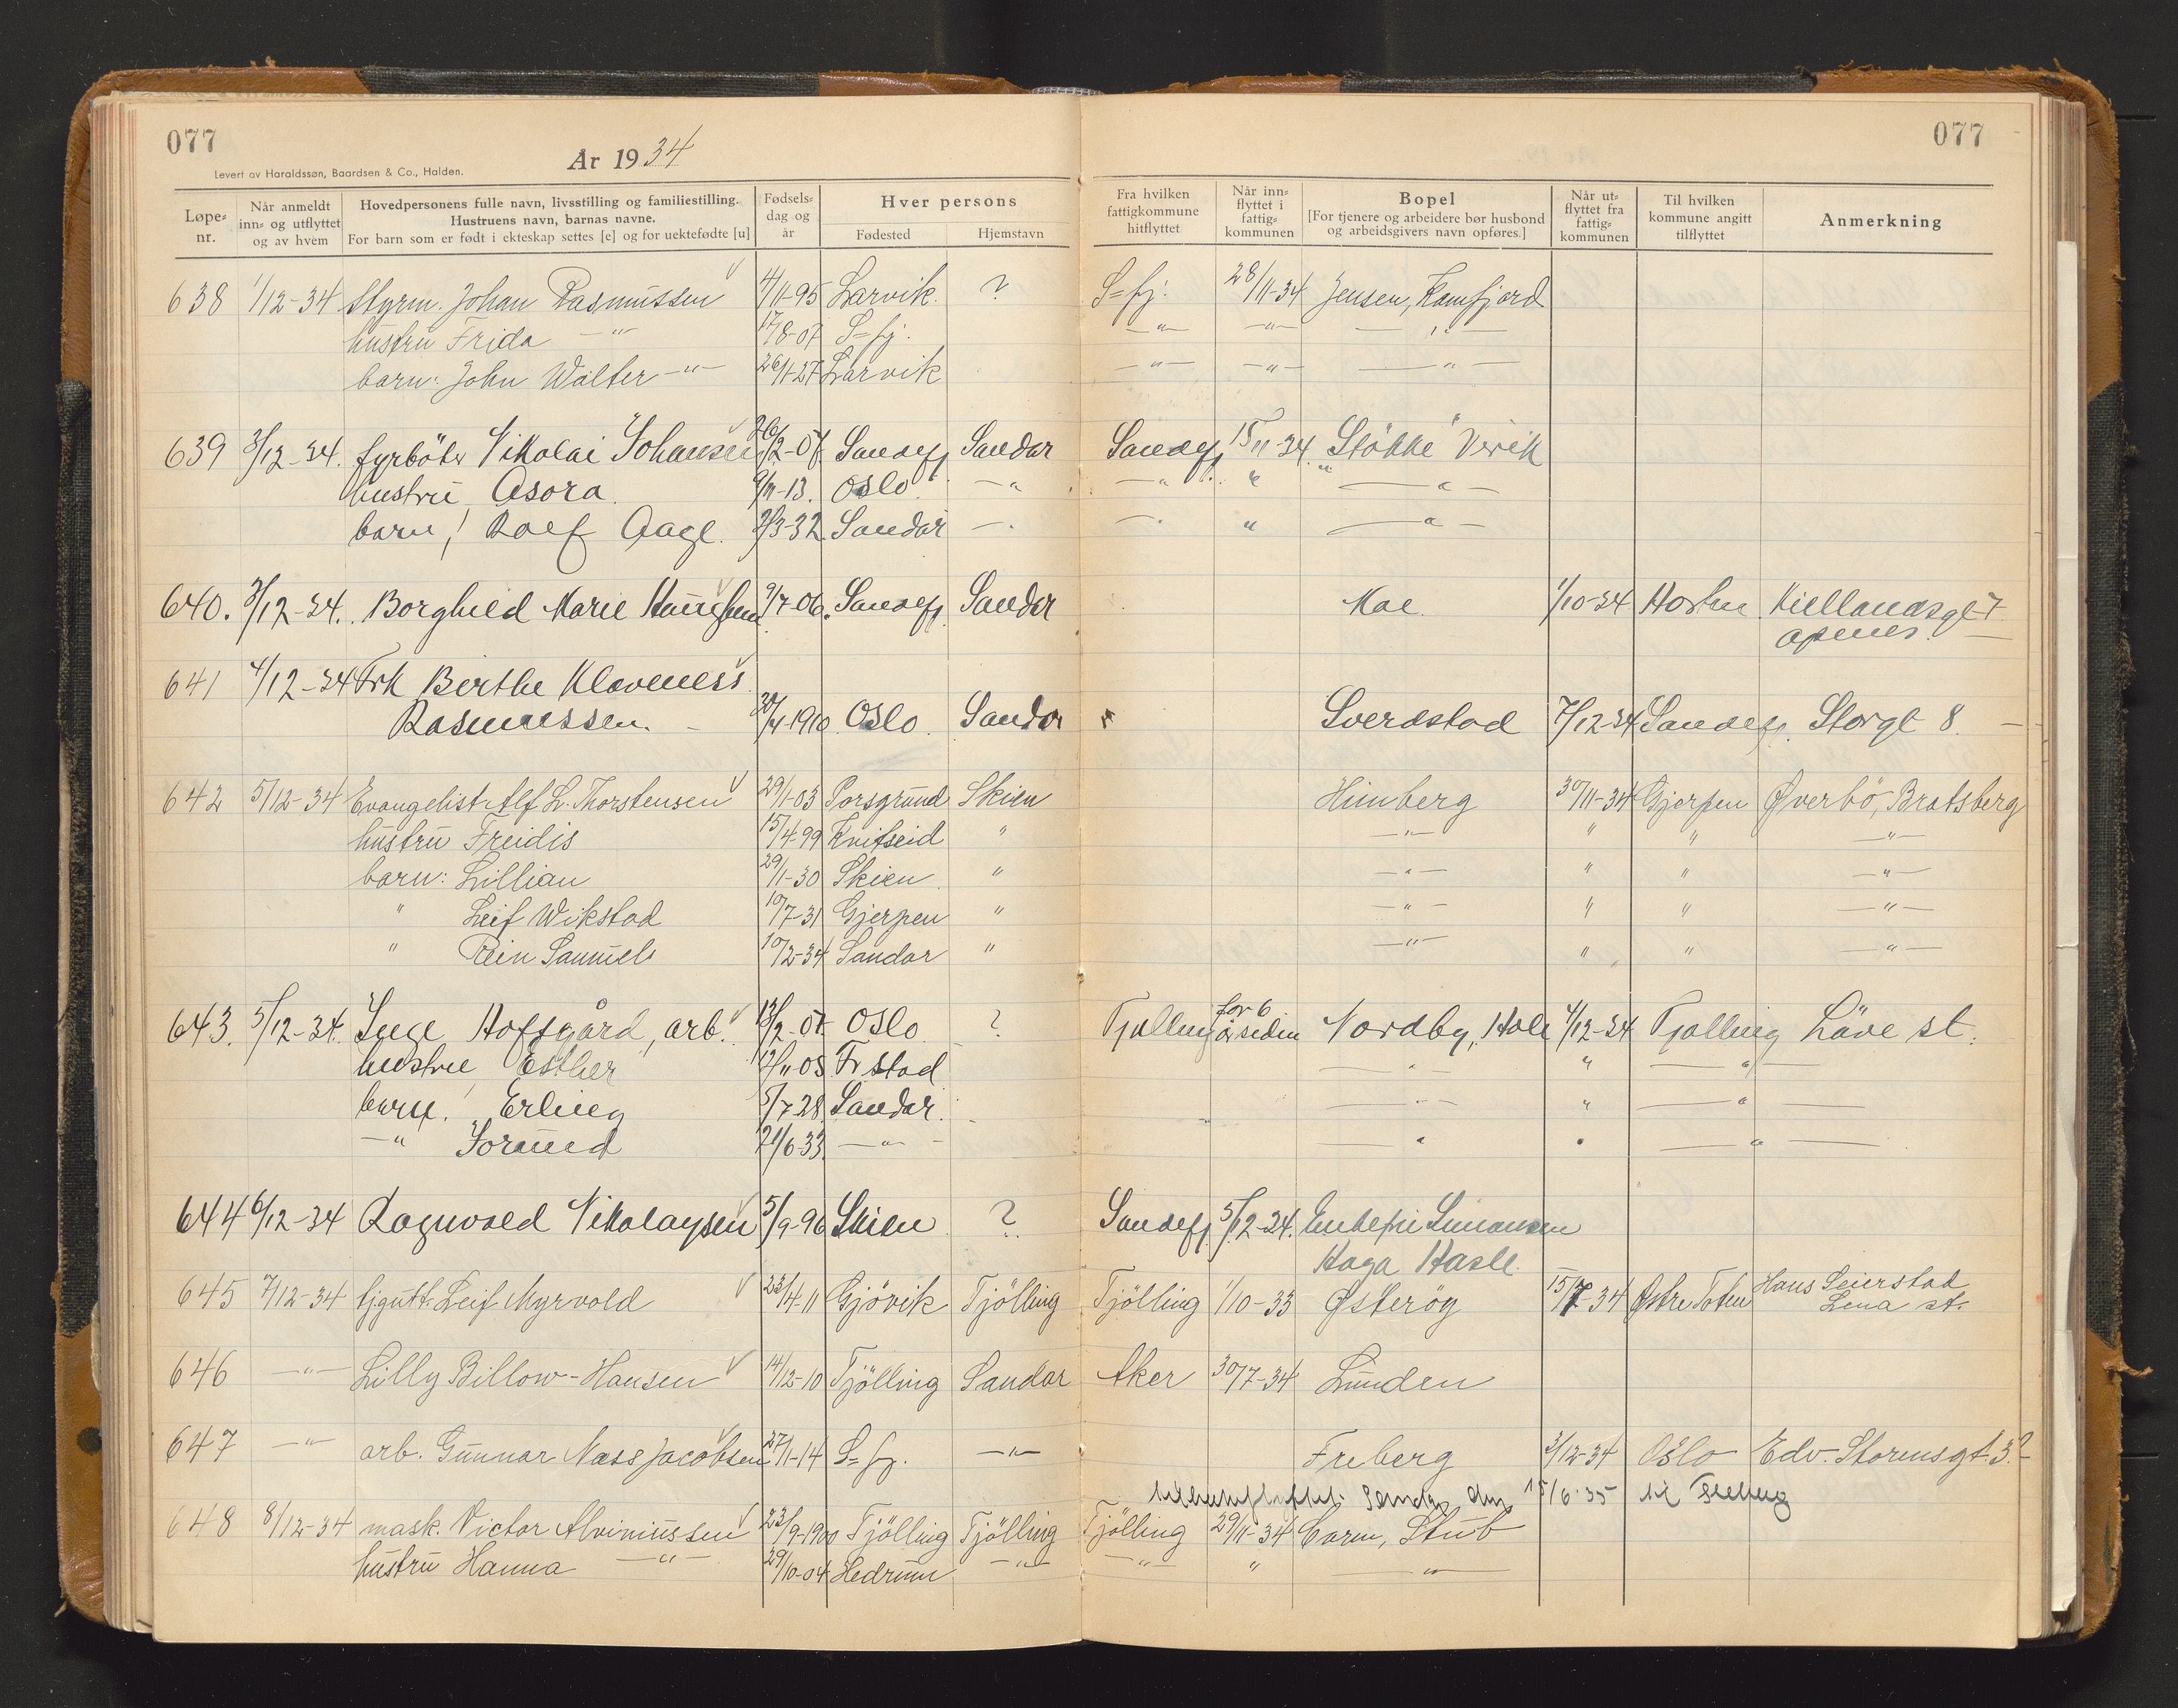 077
År 1934
077
Levert av Haraldssøn, Baardsen & Co., Halden.
Løpe-nr.
Når anmeldt inn- og utflyttet og av hvem
Hovedpersonens fulle navn, livsstilling og familiestilling.
Hustruens navn, barnas navne.
For barn som er født i ekteskap settes [e] og for uektefødte [u]
Fødsels-dag og år
Hver persons
Fødested
Hjemstavn
Fra hvilken fattigkommune hitflyttet
Når inn-flyttet i fattig-kommunen
Bopel
[For tjenere og arbeidere bør husbond og arbeidsgivers navn opføres.]
Når ut-flyttet fra fattig-kommunen
Til hvilken kommune angitt tilflyttet
Anmerkning
638 1/12-34 Styrm. Johan Rasmussen 4/11-95 Larvik. ? S=fj. 28/11-34 Jensen, Kamfjord
hustru Frida -"- 17/8-07 S=fj. -"- -"- -"-
barn: John Walter -"- 26/11-27 Larvik -"- -"- -"-
639 3/12-34. fyrböter Nikolai Johansen 26/2-07 Sandefj Sandar Sandefj 15/11-34. "Stökke" Virik
hustru Asora. 9/11-13. Oslo -" -"- " -"-
barn! Rolf Aage. 2/3-32. Sandar -" -"- " -"-
640. 3/12-34. Borghild Marie Hansen 9/7-06. Sandefj. Sandar Moe. 1/10-34 Horten Kiellandsgt 7
641 4/12-34 Frk Birthe Klaveness
Rasmussen. 30/4-1910 Oslo. Sandar Sverdstad 7/12-34 Sandefj. Storgt 8.
642 5/12-34 Evangelist Alf L. Thorstensen 29/1-03 Porsgrund Skien Himberg 30/11-34 Gjerpen Øverbö, Bratsberg
hustru Freidis 15/4-99 Kvitseid " -"- " " -"-
barn: Lillian 29/11-30 Skien " -"- " " -"-
" Leif Wikstad 10/7-31 Gjerpen " -"- " " -"-
" Rein Samuel 10/2-34 Sandar " -"- " " -"-
643. 5/12-34. Inge Hofsgård, arb. 13/2-07 Oslo ? Tjølling for 6 år siden Nordby, Hole 4/12-34 Tjølling Låve st.
hustru Esther 12/11-05 Fr stad -"- " -"-
barn! Erling 5/7-28 Sandar. -"- " -"-
-" Jorund 21/6-33. -"- -"- " -"-
644 6/12-34 Ragnvald Nikolaysen 5/9-96 Skien ? Sandefj. 5/12-34. Enkefru Simonsen
Haga Hasle
645 7/12-34 tjgutt. Leif Myrvold 23/4-11 Gjövik Tjölling Tjölling 1/10-33 Østeröy 15/7-34 Østre Toten Hans Seierstad
Lena st.
646 -"- Lilly Billow-Hansen 14/12-10 Tjölling Sandar Aker 30/7-34 Lunden
647 -"- arb. Gunnar Nass Jacobsen 27/1-14 S=fj. -"- Freberg 3/12-34 Oslo Edv. Stormsgt. 3?
Sandar den 15/6-35 til Freberg
648 8/12-34 mask. Victor Alviniussen 23/9-1900 Tjölling Tjölling Tjölling 29/11-34 Caren, Stub
hustru Hanna -"- 29/10-04 Hedrum -"- -"- " -"-